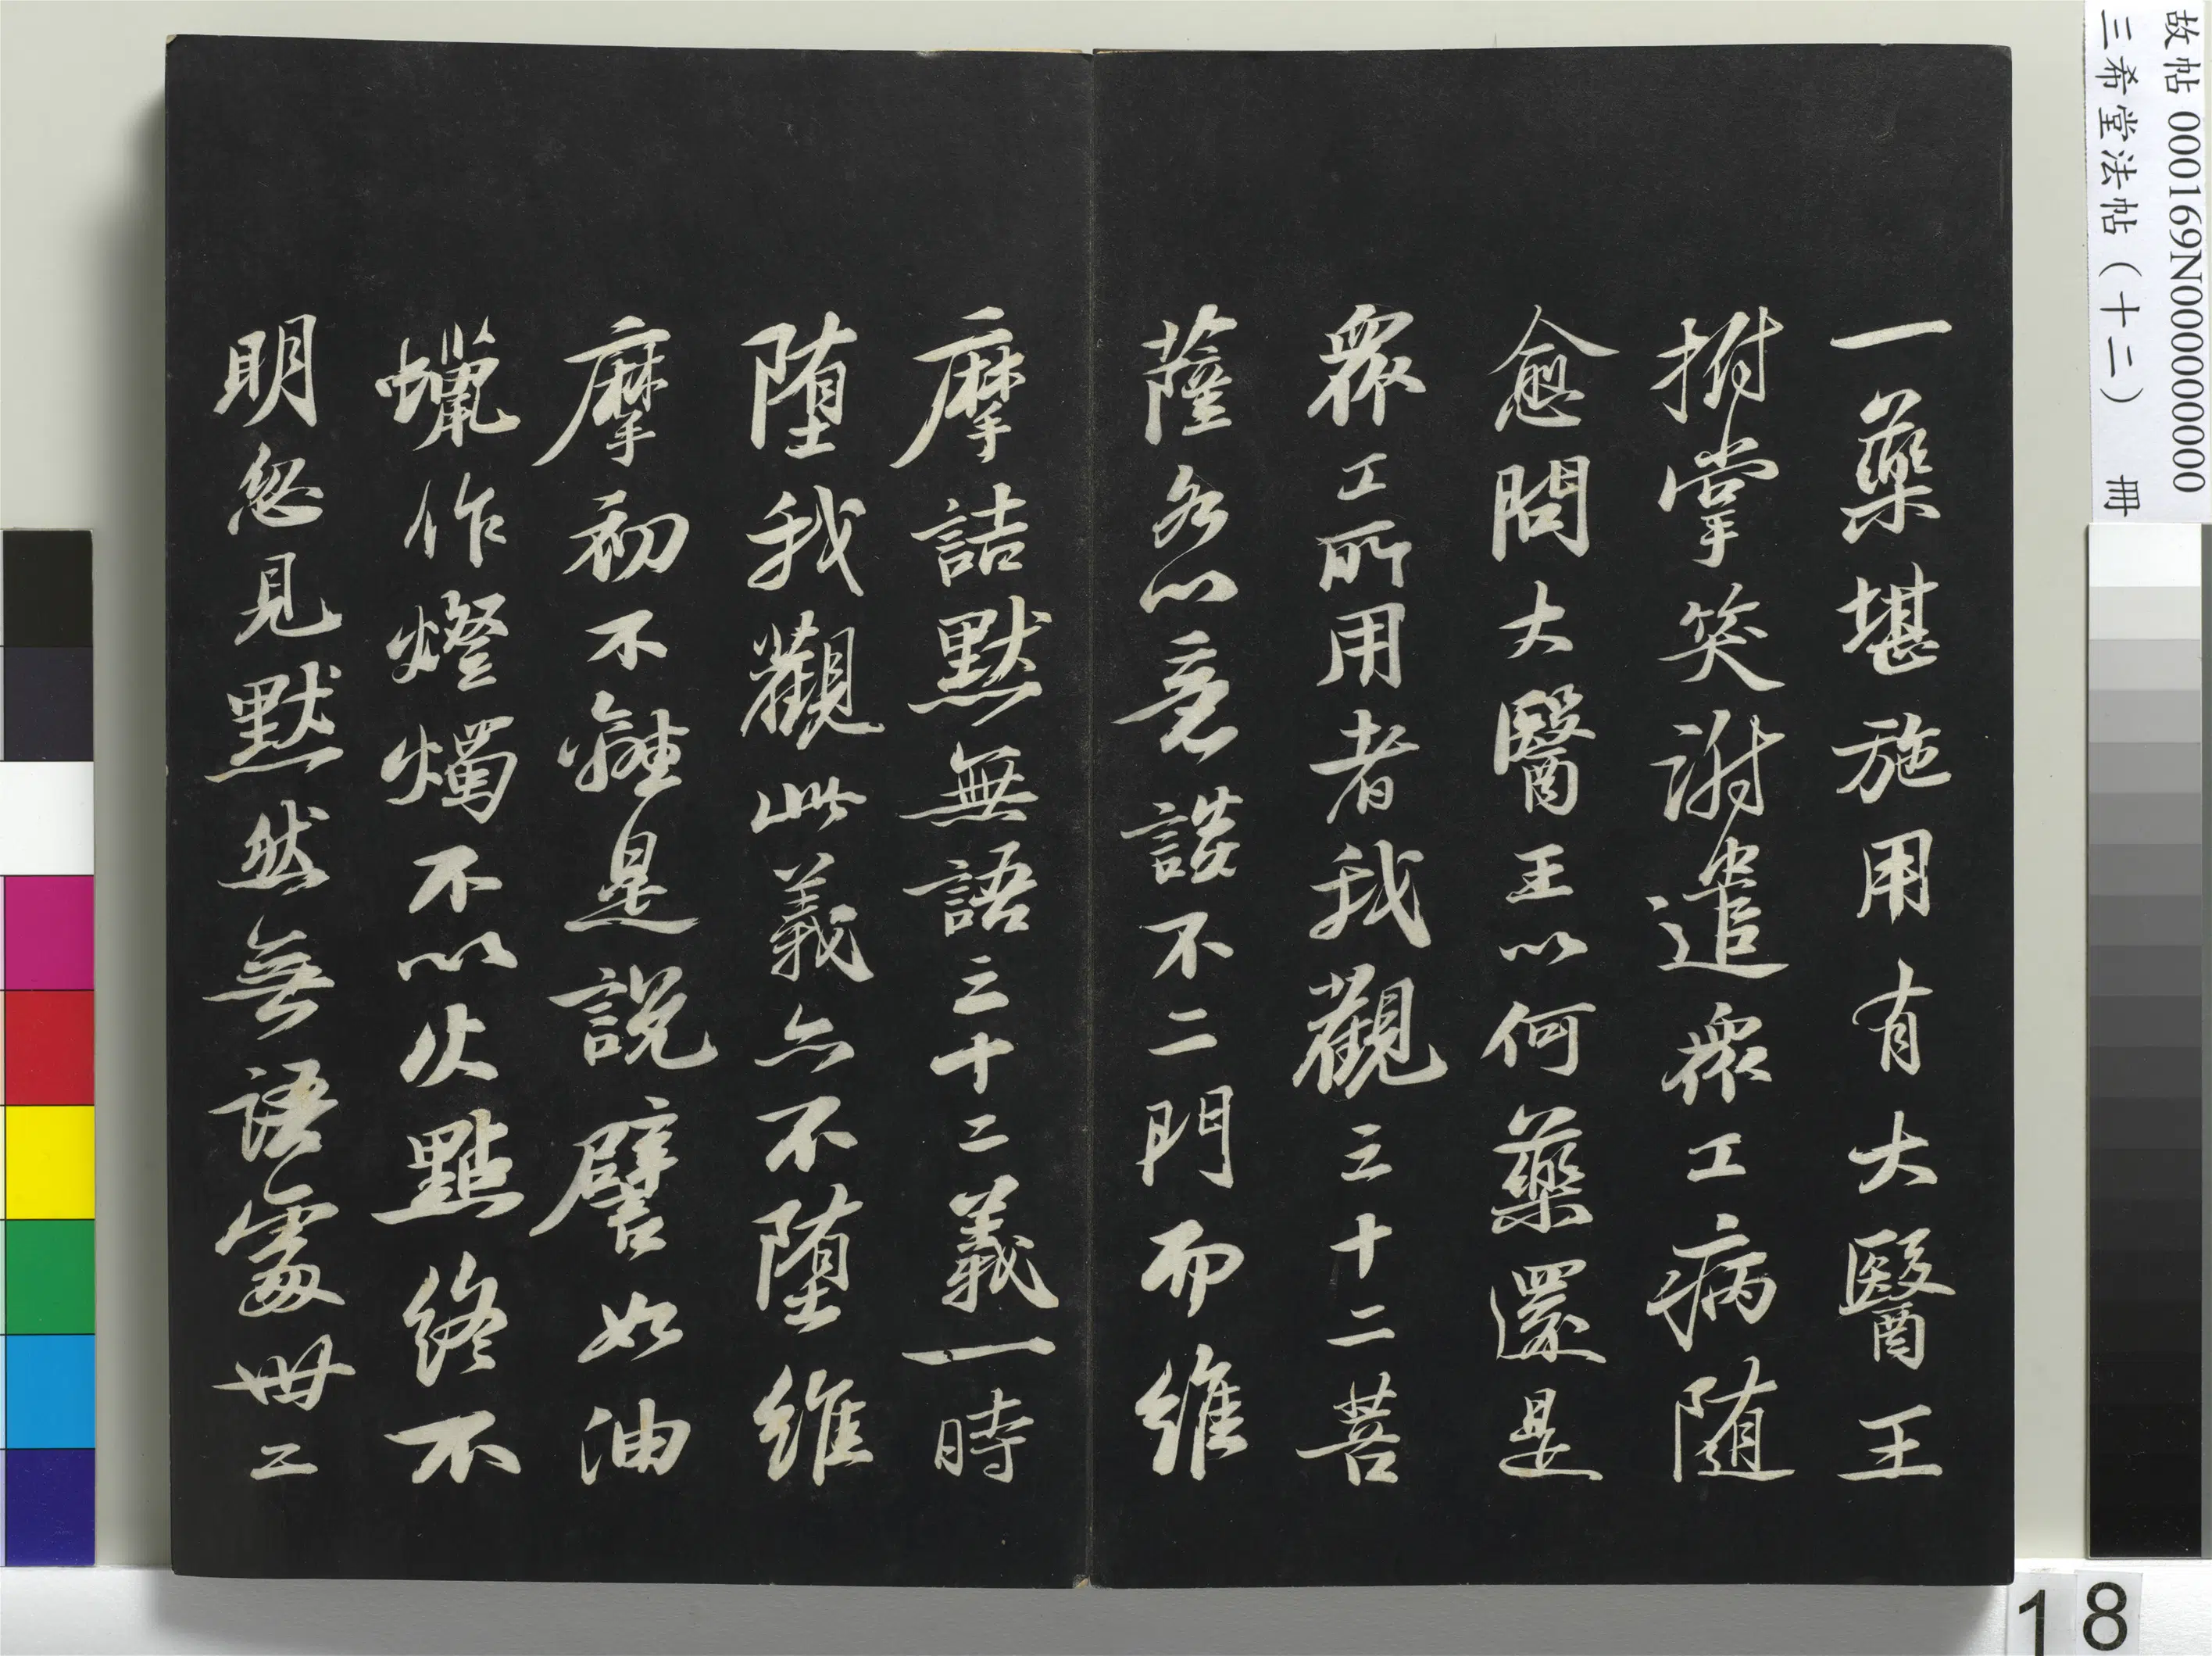 一藥堪施用有大醫王
拊掌笑謝遣衆工病随
愈問大醫王以何藥還是
衆工所用者我觀三十二菩
薩各以意談不二門而維
摩詰默無語三十二義一時
堕我觀此義亦不堕維
摩初不離是說譬如油
蠟作燈燭不以火點終不
明忽見默然無語處卅二
故帖 000169N000000000
三希堂法帖（十二） 冊
18